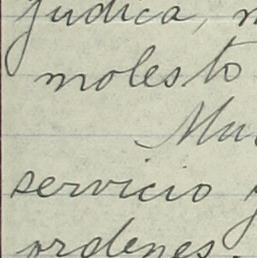 judica,
molesto
servicio
ordenes.